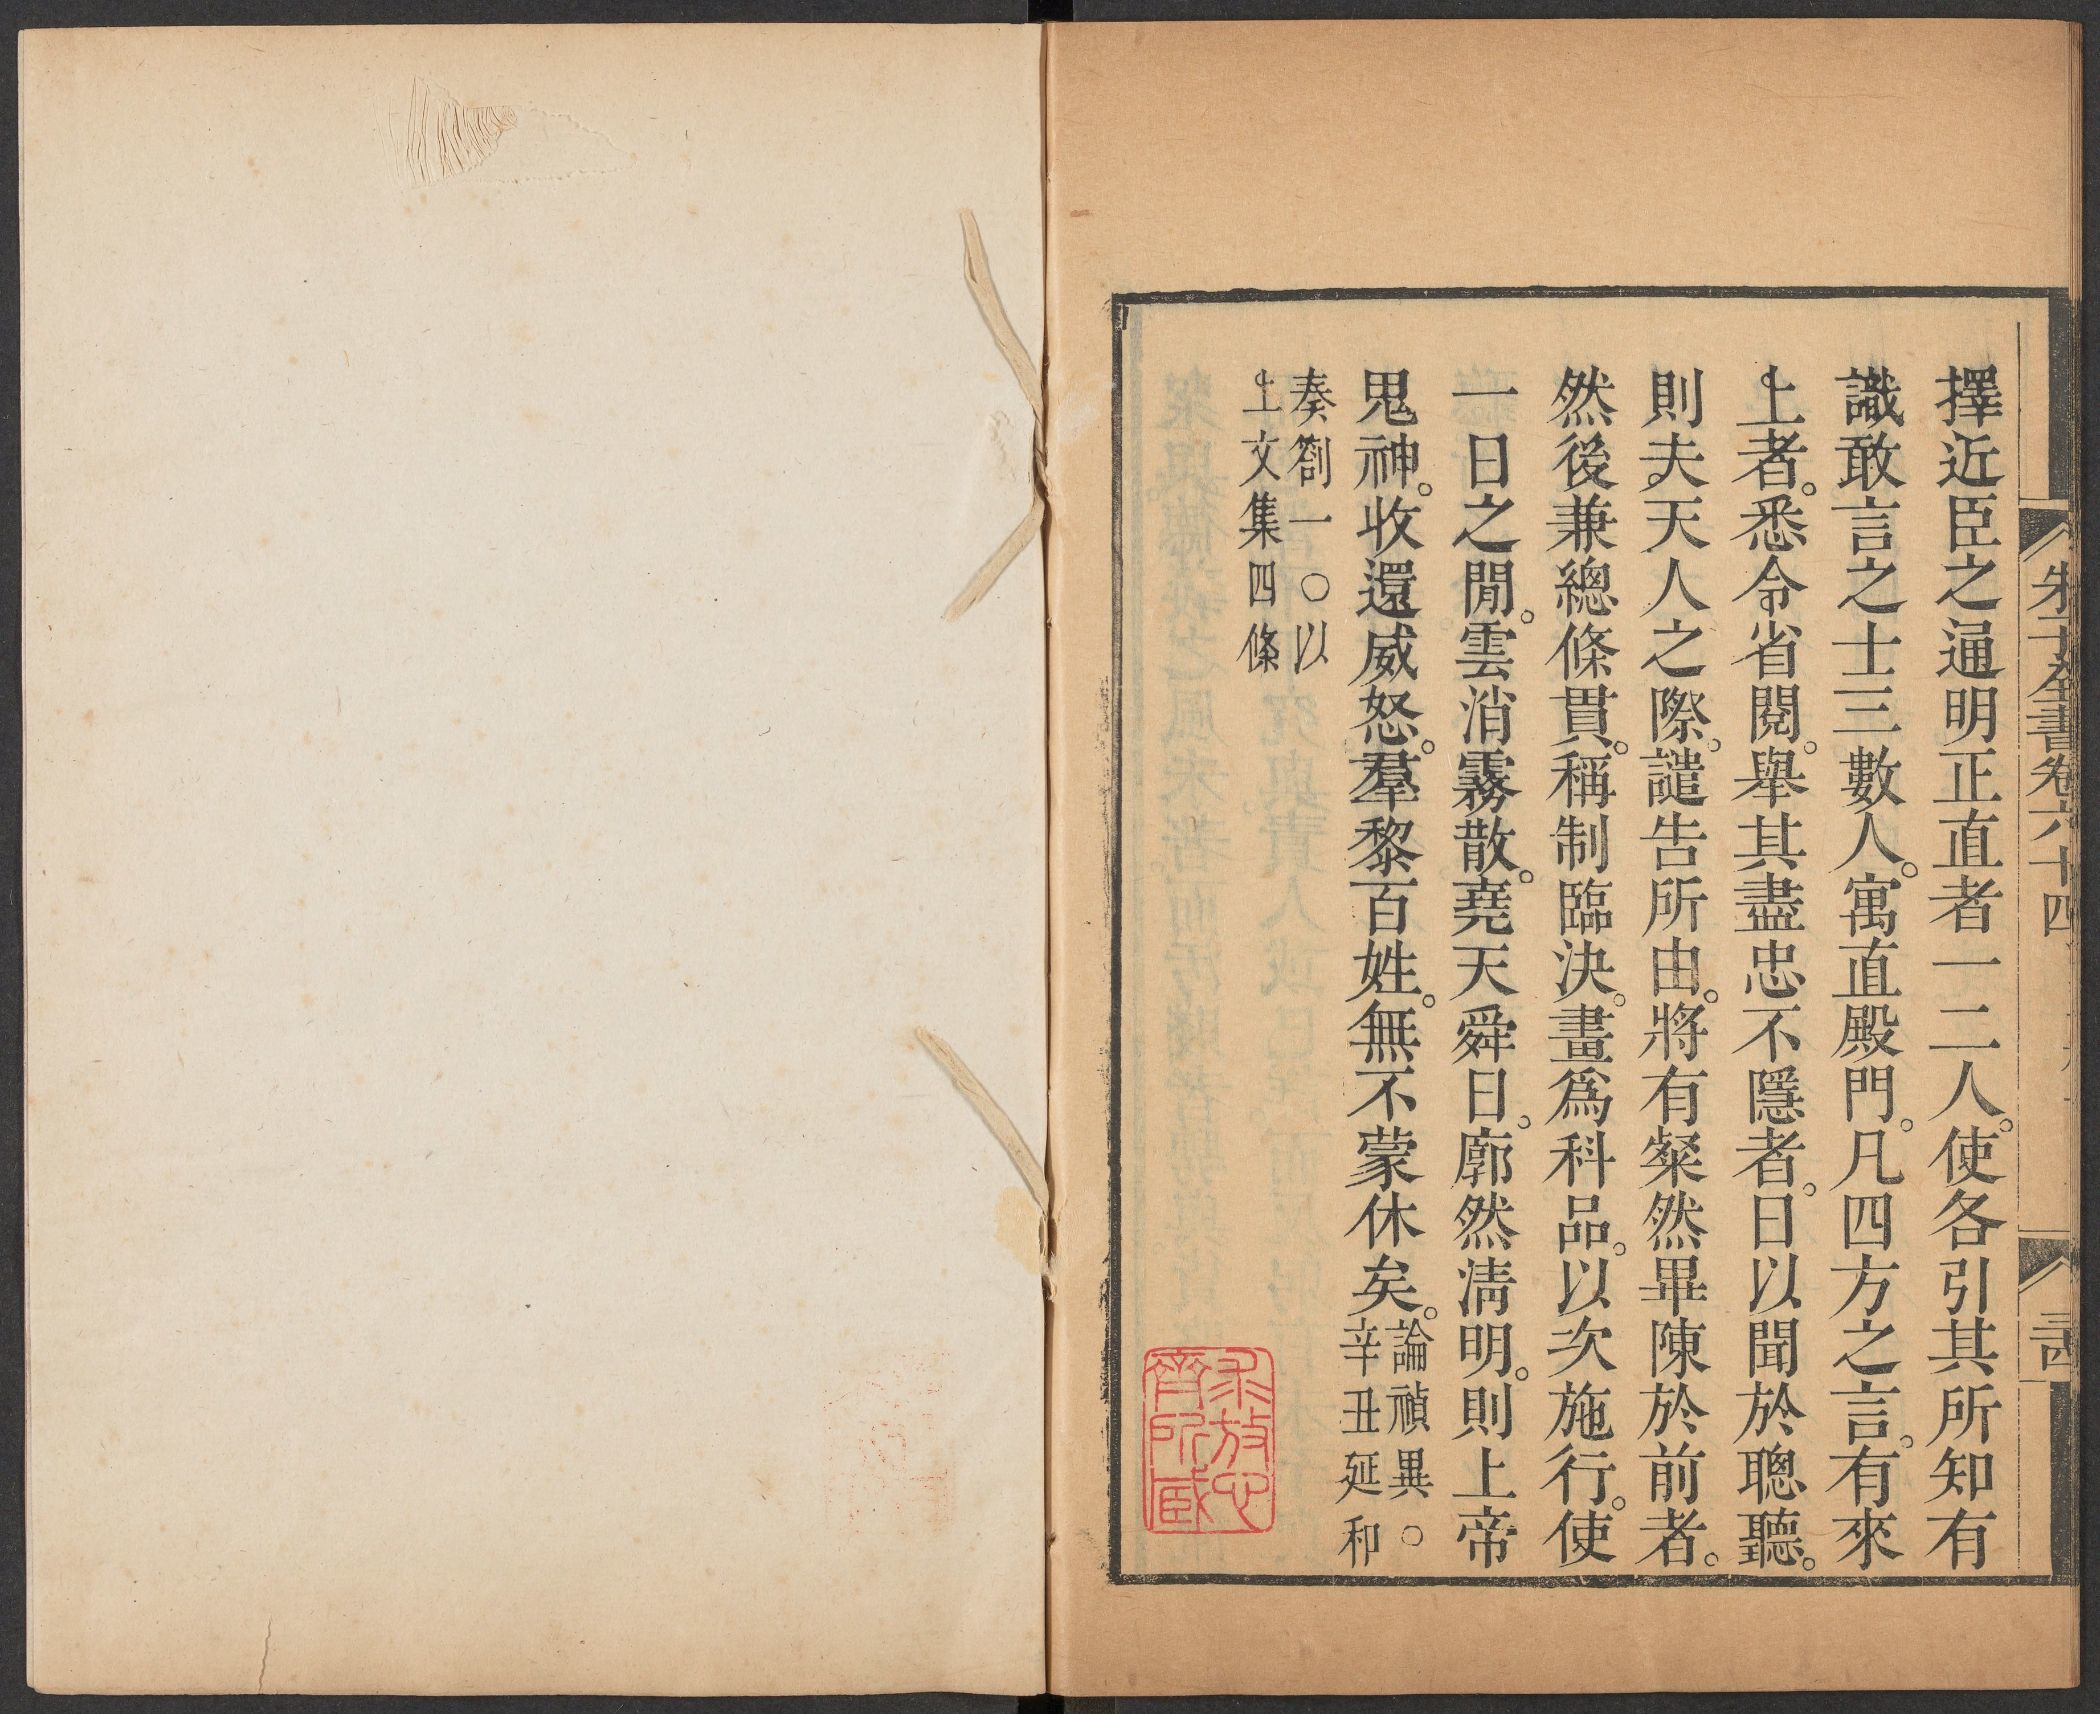 朱子全書卷六十四
擇近臣之通明正直者一二人。使各引其所知有
識敢言之士三數人。寓直殿門。凡四方之言。有來
上者。悉令省閱。舉其盡忠不隱者。日以聞於聰聽。
則夫天人之際。譴告所由。將有粲然畢陳於前者。
然後兼總條貫。稱制臨決。畫爲科品。以次施行。使
一日之閒。雲消霧散。堯天舜日。廓然淸明。則上帝
鬼神。收還威怒。羣黎百姓。無不蒙休矣。
論禎異○
辛丑延和
奏劄一○以
上文集四條
求放心
齋所臧